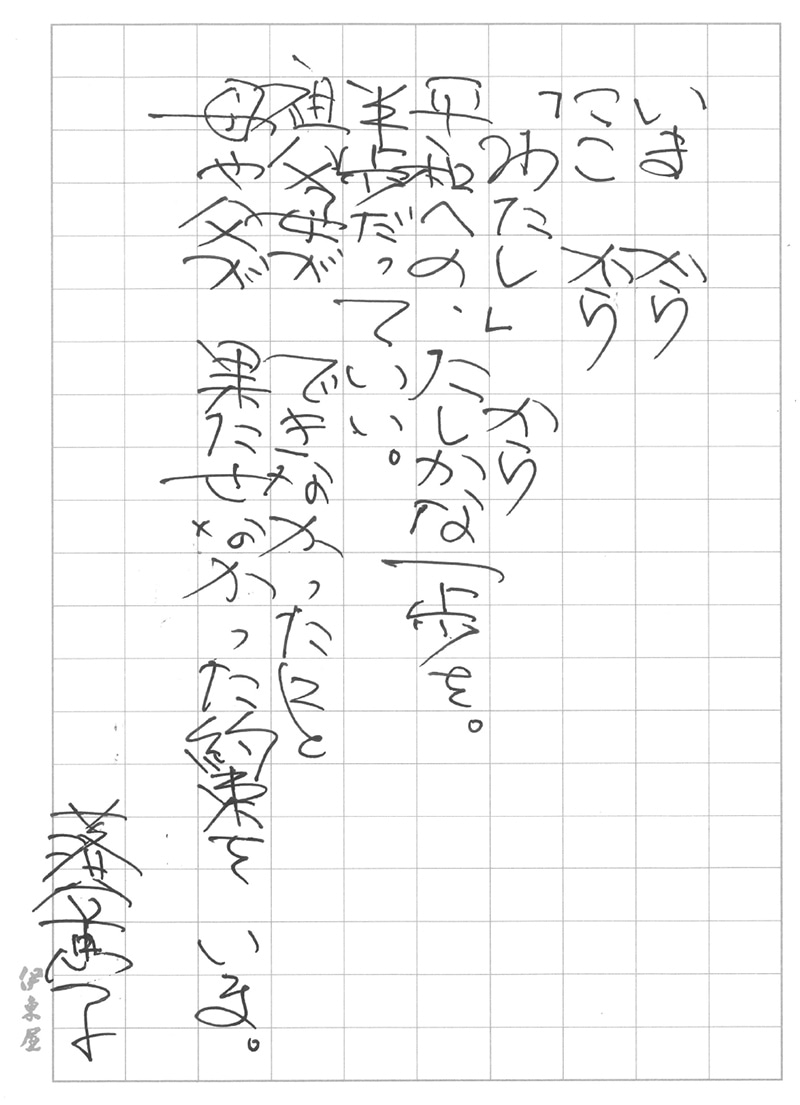 いまから
ここから
「わたし」から
平和への、たしかな一歩を。
半歩だっていい。
祖父母ができなかったこと
母や父が果たせなかった約束を いま。
落合恵子
伊東屋